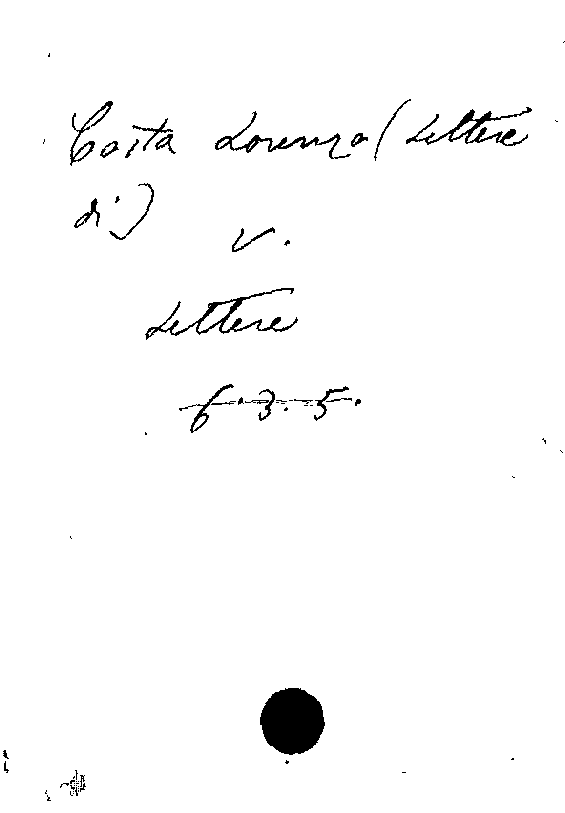 Costa Lorenzo (Lettere
di)
V.
Lettere
6.3.5.